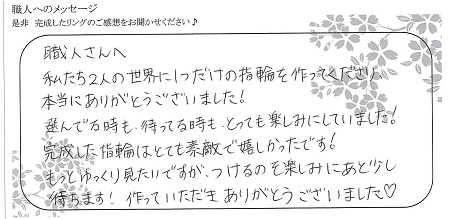 職人へのメッセージ
是非 完成したリングのご感想をお聞かせください♪
職人さんへ
私たち2人の世界に1つだけの指輪を作ってくださり、
本当にありがとうございました!
選んでる時も、待ってる時も、とっても楽しみにしていました!
完成した指輪はとても素敵で嬉しかったです!
もっとゆっくり見たいですが、つけるのを楽しみにあと少し
待ちます! 作っていただきありがとうございました♡